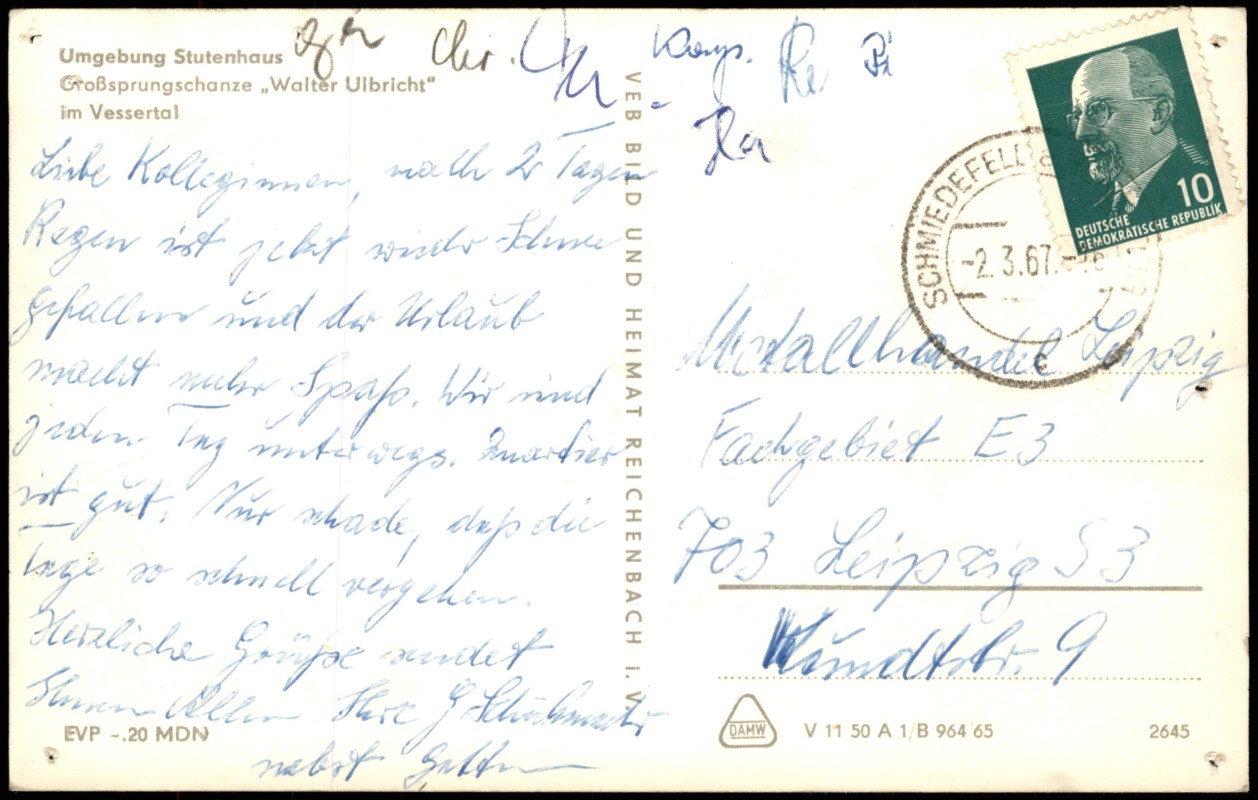 Umgebung Stutenhaus
Großsprungschanze „Walter Ulbricht“
im Vessertal
Chr.
Re
Liebe Kolleginnen, nach 2 Tagen
Regen ist jetzt wieder Schnee
gefallen und der Urlaub
macht mehr Spaß. Wir sind
jeden Tag unterwegs. Quartier
ist gut. Nur schade, daß die
Tage so schnell vergehen.
Herzliche Grüße sendet
Ihnen Allen Ihre G
nebst Gatten
EVP -.20 MDN
VEB BILD UND HEIMAT REICHENBACH i. V.
10
DEUTSCHE
DEMOKRATISCHE REPUBLIK
SCHMIEDEFELD
-2.3.67.
Metallhandel Leipzig
Fachgebiet E3
703 Leipzig S3
Kundtstr. 9
DAMW
V 11 50 A 1/B 964 65
2645